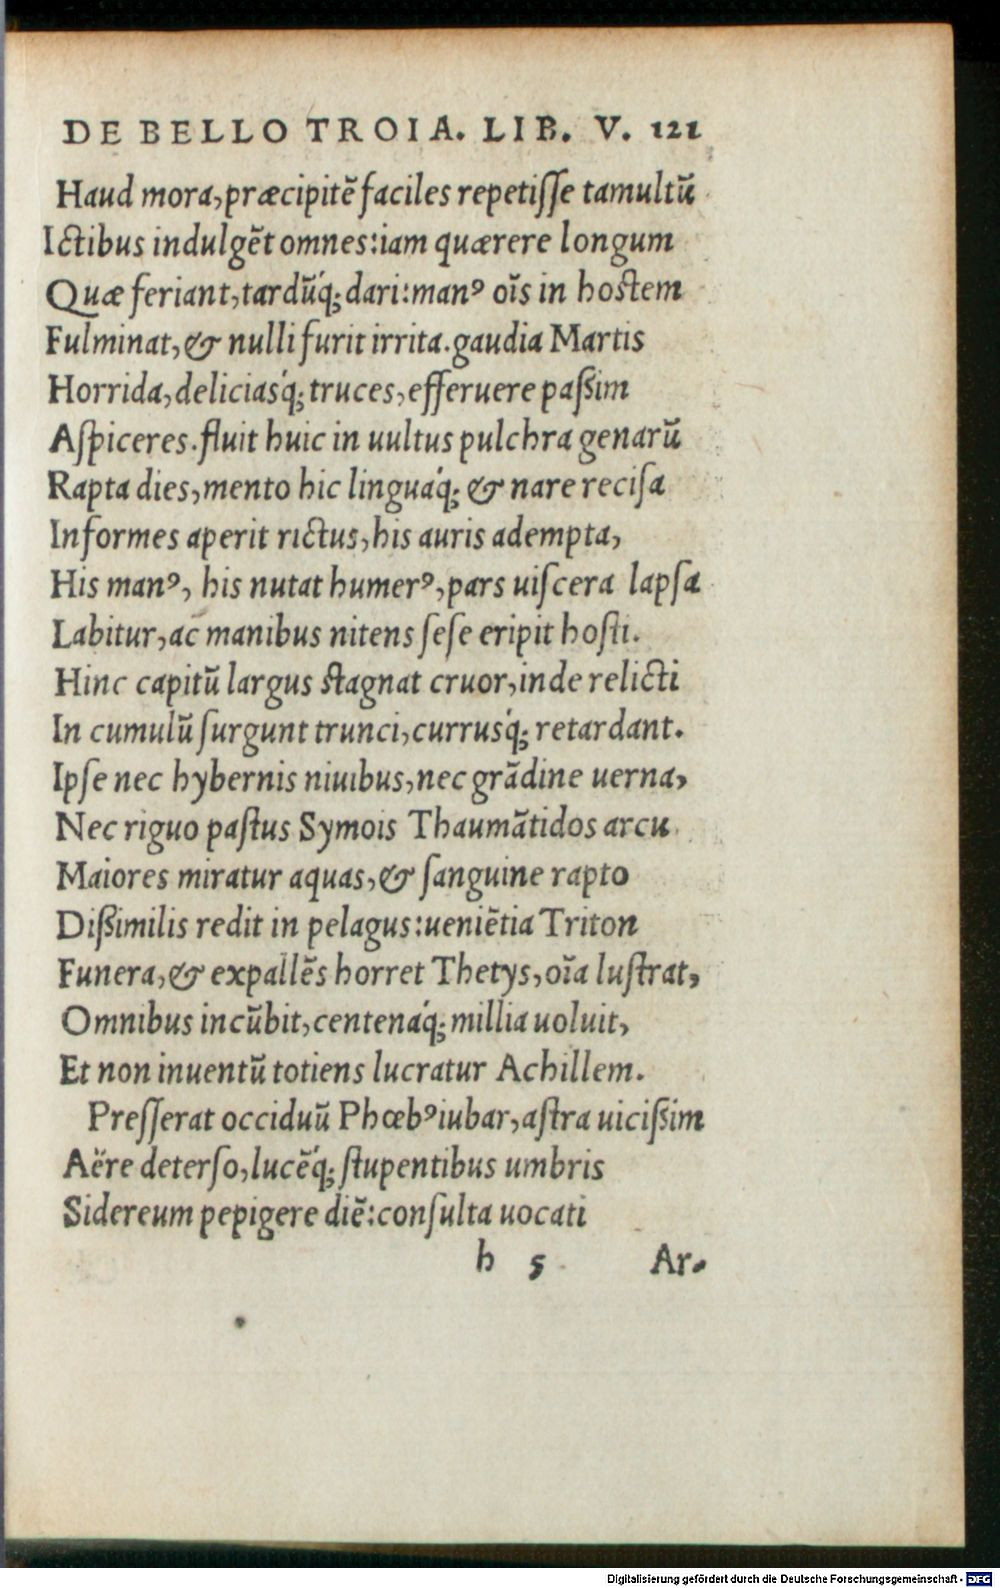 DE BELLO TROIA. LIB. V. 121
Haud mora, præcipitẽ faciles repetiſſe tamultũ
Ictibus indulgẽt omnes: iam quærere longum
Quæ feriant, tardũq́; dari: manꝰ oı̃s in hostem
Fulminat, & nulli furit irrita. gaudia Martis
Horrida, deliciasq́; truces, efferuere paßim
Aſpiceres. fluit huic in uultus pulchra genarũ
Rapta dies, mento hic linguaq́; & nare reciſa
Informes aperit rictus, his auris adempta,
His manꝰ, his nutat humerꝰ, pars uiſcera lapſa
Labitur, ac manibus nitens ſeſe eripit hoſti.
Hinc capitũ largus stagnat cruor, inde relicti
In cumulũ ſurgunt trunci, currusq́; retardant.
Ipſe nec hybernis niuibus, nec grãdine uerna,
Nec riguo paſtus Symois Thaumãtidos arcu
Maiores miratur aquas, & ſanguine rapto
Dißimilis redit in pelagus: ueniẽtia Triton
Funera, & expallẽs horret Thetys, oı̃a luſtrat,
Omnibus incũbit, centenaq́; millia uoluit,
Et non inuentũ totiens lucratur Achillem.
Preſſerat occiduũ Phœbꝰ iubar, aſtra uicißim
Aëre deterſo, lucẽq́; ſtupentibus umbris
Sidereum pepigere diẽ: conſulta uocati
h 5 Ar-
Digitalisierung gefördert durch die Deutsche Forschungsgemeinschaft - DFG